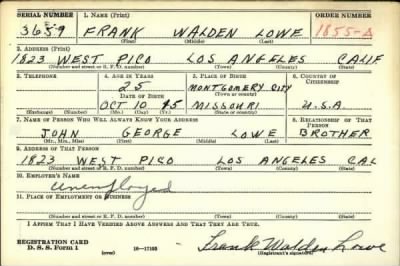 SERIAL NUMBER 1. NAME (Print) ORDER NUMBER
3659 FRANK WALDEN LOWE 1855-A
(First) (Middle) (Last)
2. ADDRESS (Print)
1823 WEST PICO LOS ANGELES CALIF
(Number and street or R. F. D. number) (Town) (County) (State)
3. TELEPHONE 4. AGE IN YEARS 5. PLACE OF BIRTH 6. COUNTRY OF CITIZENSHIP
25 MONTGOMERY CITY
DATE OF BIRTH (Town or county)
OCT 10 15 MISSOURI U.S.A
(Exchange) (Number) (Mo.) (Day) (Yr.) (State or country)
7. NAME OF PERSON WHO WILL ALWAYS KNOW YOUR ADDRESS 8. RELATIONSHIP OF THAT PERSON
JOHN GEORGE LOWE BROTHER
(Mr., Mrs., Miss) (First) (Middle) (Last)
9. ADDRESS OF THAT PERSON
1823 WEST PICO LOS ANGELES CAL
(Number and street or R. F. D. number) (Town) (County) (State)
10. EMPLOYER'S NAME
unemployed
11. PLACE OF EMPLOYMENT OR BUSINESS
(Number and street or R. F. D. number) (Town) (County) (State)
I AFFIRM THAT I HAVE VERIFIED ABOVE ANSWERS AND THAT THEY ARE TRUE.
REGISTRATION CARD
D. S. S. Form 1 (over) 16-17105 Frank Walden Lowe
(Registrant's signature)